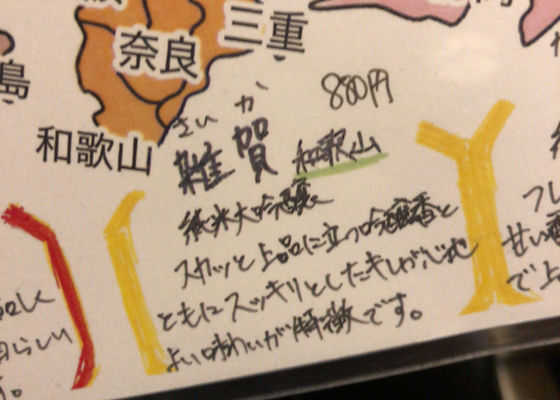 三重
奈良
島
和歌山
さいか
880円
雑賀
和歌山
純米大吟醸
スカッと上品に立つ吟醸香と
ともにスッキリとしたキレが心地
よい味わいが特徴です。
らしい
す。
フレ
甘い香
で上